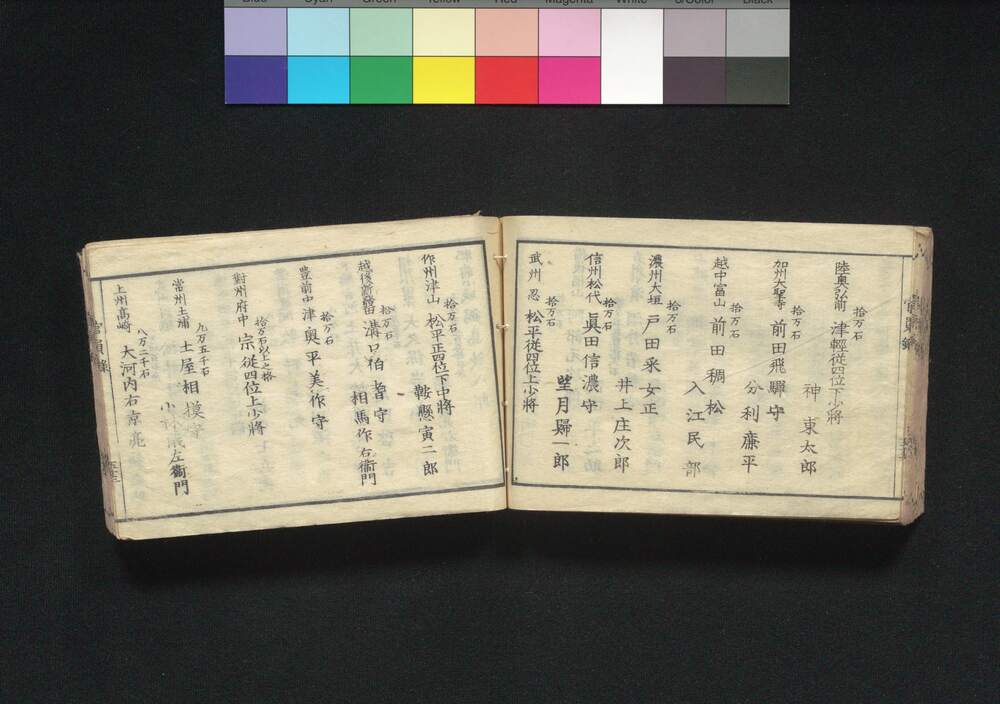 Cyan
Green
Yellow
Red
Magenta
White
3/Color
Black
拾万石
陸奥弘前 津輕従四位下少将
神 東太郎
拾万石
加州大聖寺 前田飛騨守
分利廉平
拾万石
越中富山 前田稠松
入江民部
拾万石
濃州大垣 戸田采女正
井上庄次郎
拾万石
信州松代 眞田信濃守
望月歸一郎
拾万石
武州忍 松平従四位上少将
拾万石
作州津山 松平正四位下中将
鞍懸寅二郎
拾万石
越後新發田 溝口伯耆守
相馬作右衞門
拾万石
豊前中津 奥平美作守
拾万石以上之格
對州府中 宗従四位上少将
九万五千石
常州土浦 土屋相摸守
小林儀左衞門
八万二千石
上州高崎 大河内右京亮
官員録